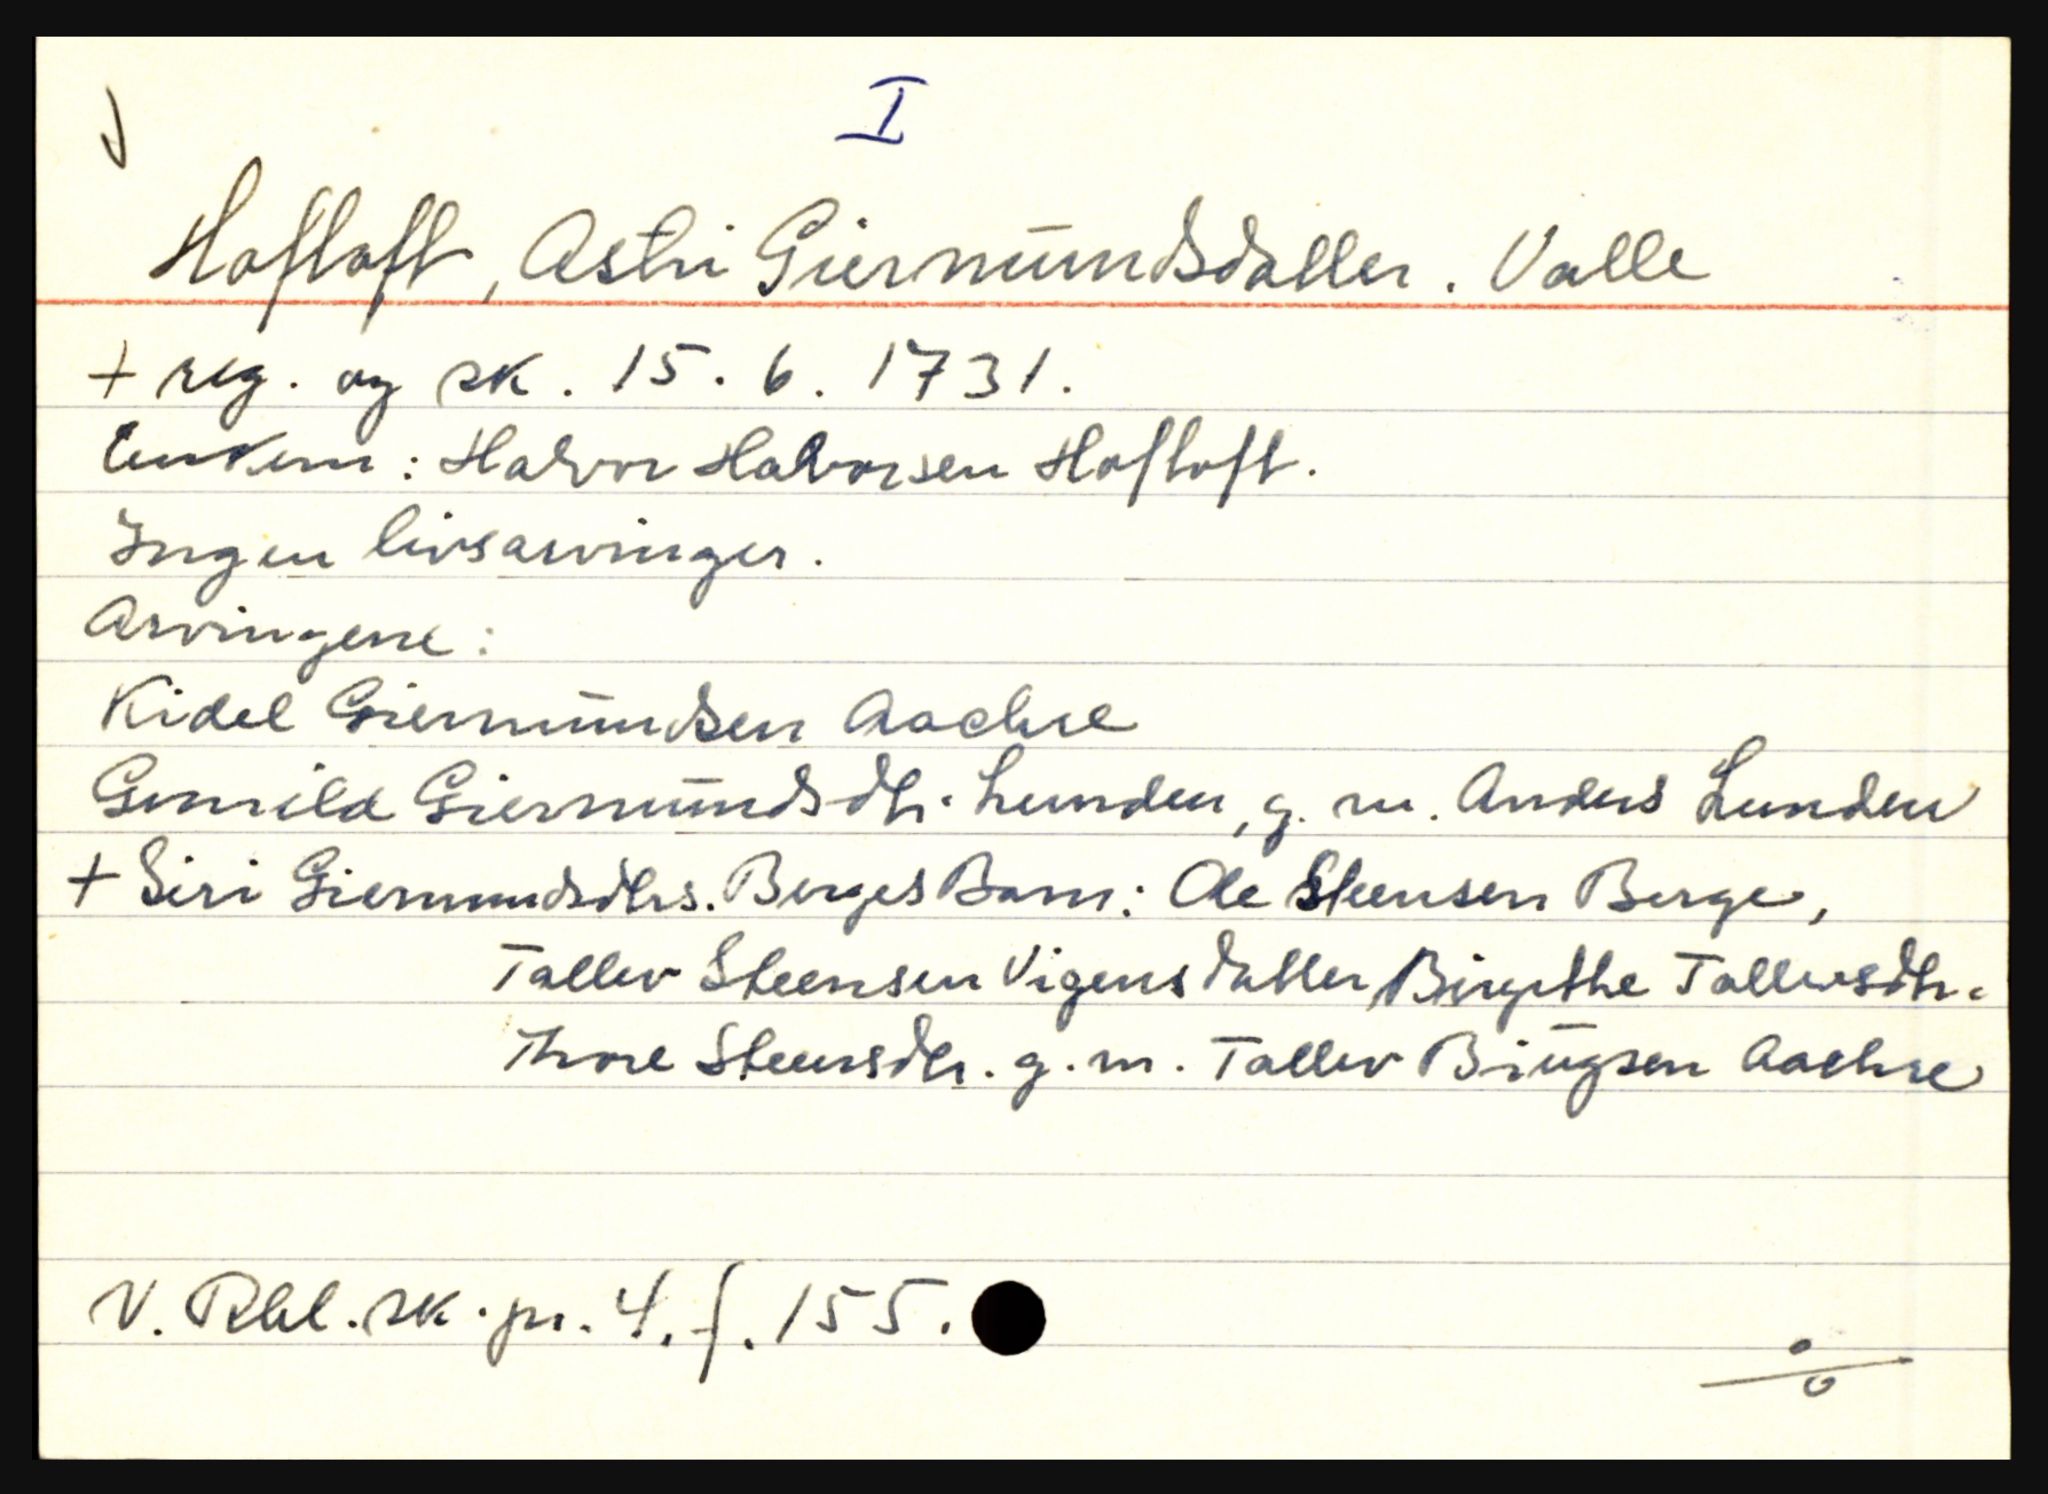 I
Hoftoft, Astri Giermūndsdatter. Valle
+ reg. og sk. 15. 6. 1731.
Enkem: Halvor Halvorsen Hoftoft.
Ingen livsarvinger.
Arvingene:
Kidel Giermūndsen Aachre
Gunild Giermūndsdtr. Lunden, g. m. Anders Lunden
+ Siri Giermundsdtrs. Berges Barn: Ole Steensen Berge,
Tallev Steensen Vigens datter, Birgithe Tallevsdtr.
Thore Steensdtr. g. m. Tallev Biūgsen Aachre
V. Rbl. sk. pr. 4. f. 155.